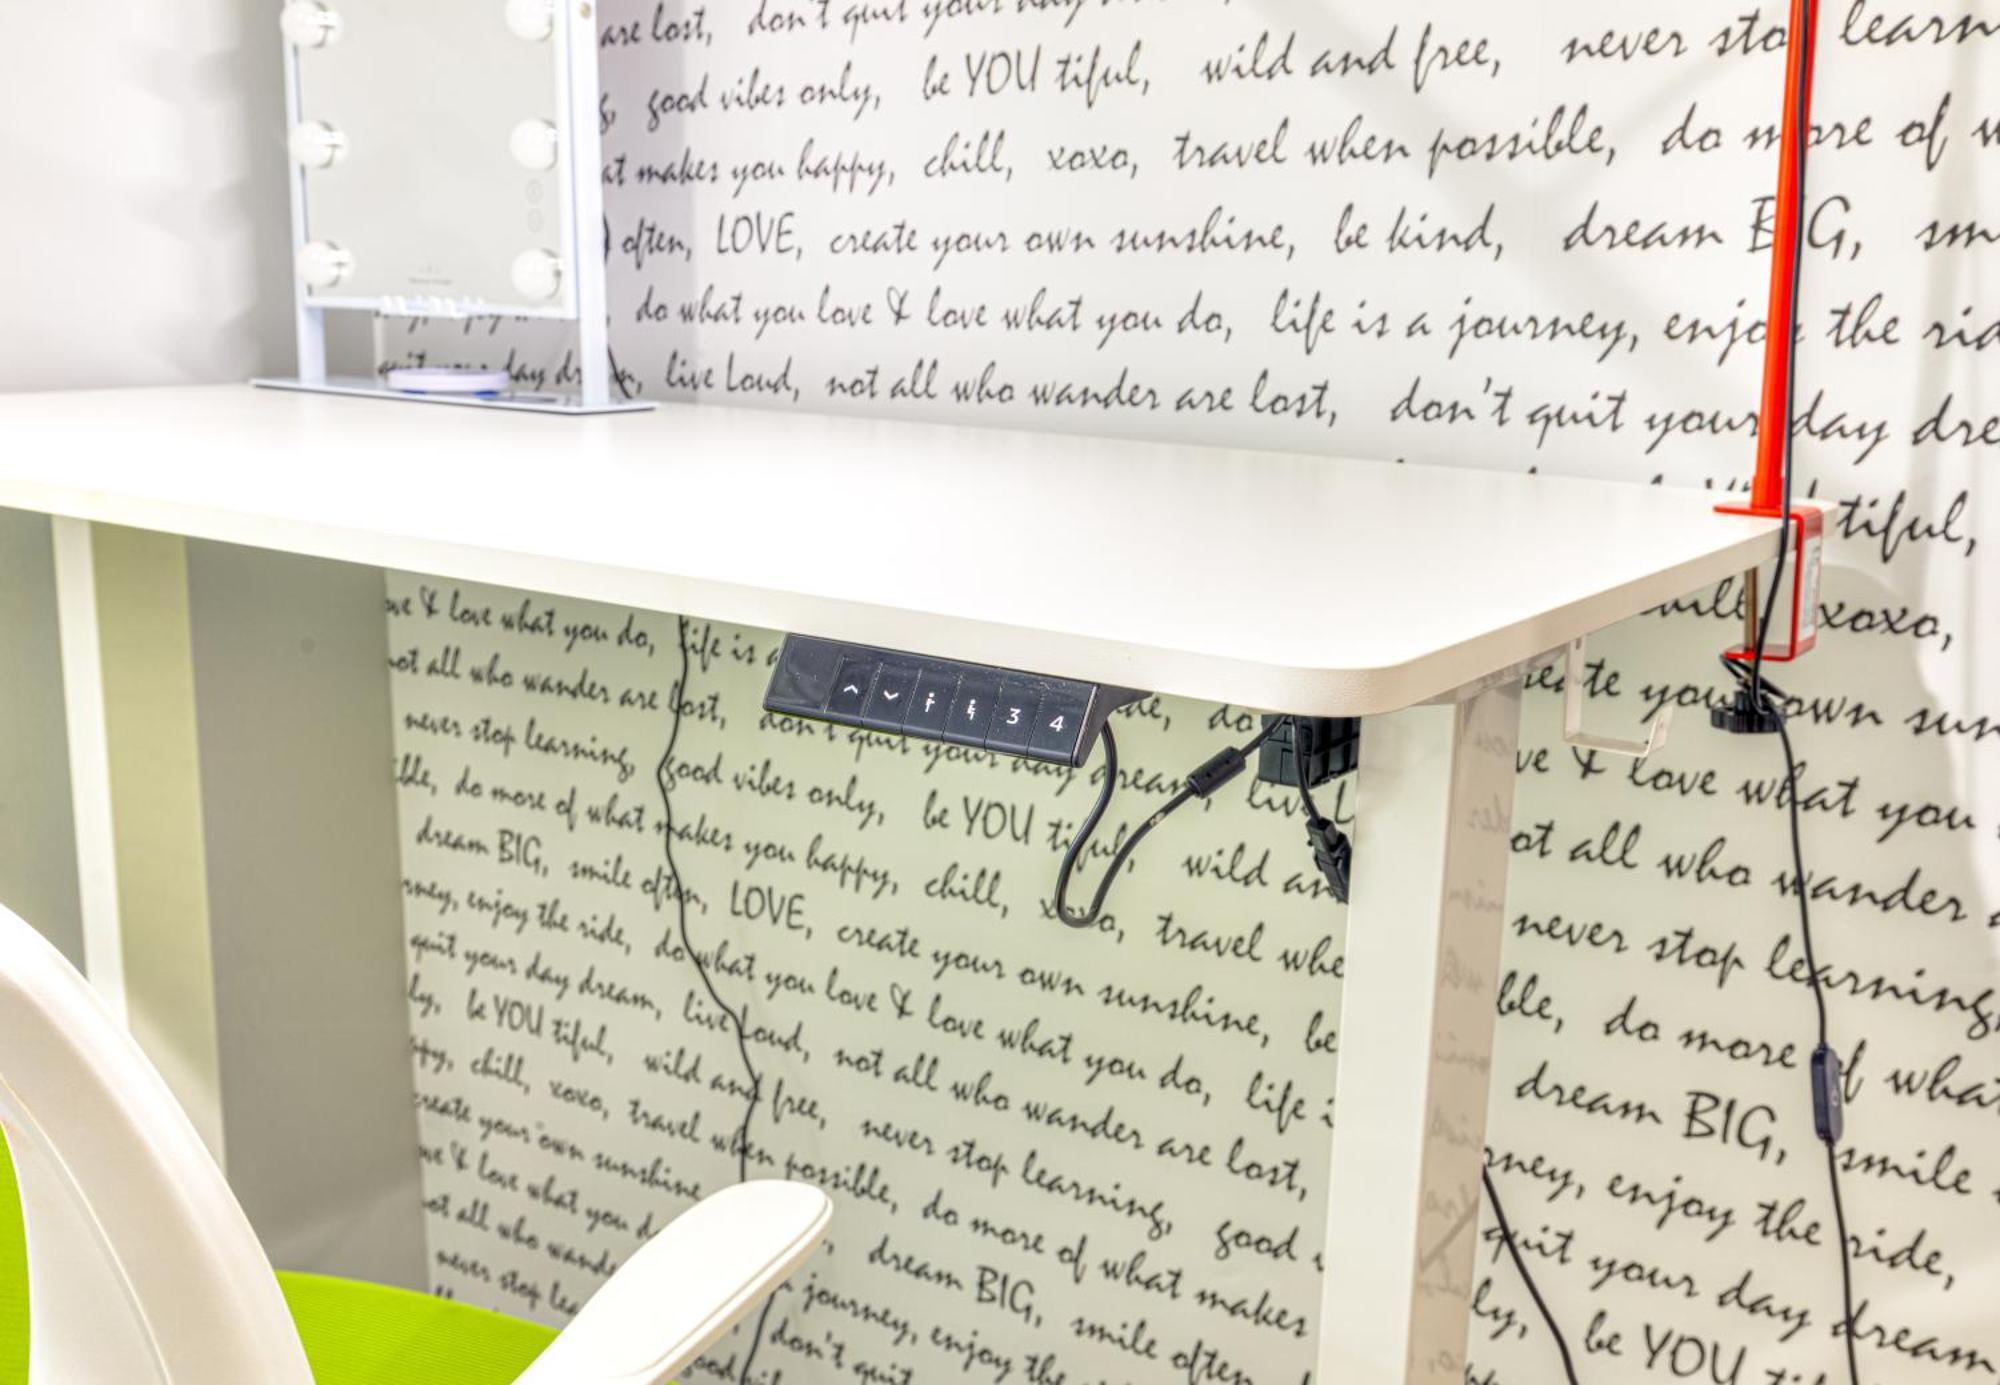 are lost, don't quit your day
good vibes only, be YOU tiful, wild and free, never sto learn
at makes you happy, chill, xoxo, travel when possible, do more of w
often, LOVE, create your own sunshine, be kind, dream BIG, sm
do what you love & love what you do, life is a journey, enjoy the rid
quit your day dream, live Loud, not all who wander are lost, don't quit your day dre
tiful,
chill, xoxo,
create your own sun
ve & love what you
ot all who wander
never stop learning,
ble, do more of what
dream BIG, smile
rney, enjoy the ride,
quit your day dream
ly, be YOU ti
ve & love what you do, life is a ide, do
not all who wander are lost, don't quit your day dream, live L
never stop learning, good vibes only, be YOU tiful, wild an
ible, do more of what makes you happy, chill, xoxo, travel whe
dream BIG, smile often, LOVE, create your own sunshine, be
rney, enjoy the ride, do what you love & love what you do, life i
quit your day dream, live Loud, not all who wander are lost,
ly, be YOU tiful, wild and free, never stop learning, good v
appy, chill, xoxo, travel when possible, do more of what makes
create your own sunshine dream BIG, smile often
ve & love what you d journey, enjoy the
not all who wande don't quit
never stop lea good vib
3 4